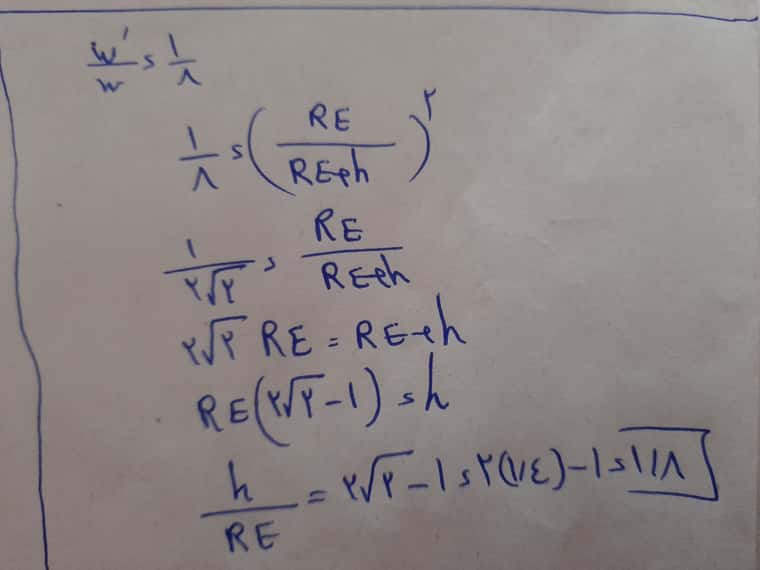 W'/W = ۱/۸
۱/۸ = (RE/(RE+h))^۲
۱/(۲√۲) = RE/(RE+h)
۲√۲ RE = RE+h
RE(۲√۲-۱) = h
h/RE = ۲√۲-۱ = ۲(۱/٤)-۱ = ۱/۸